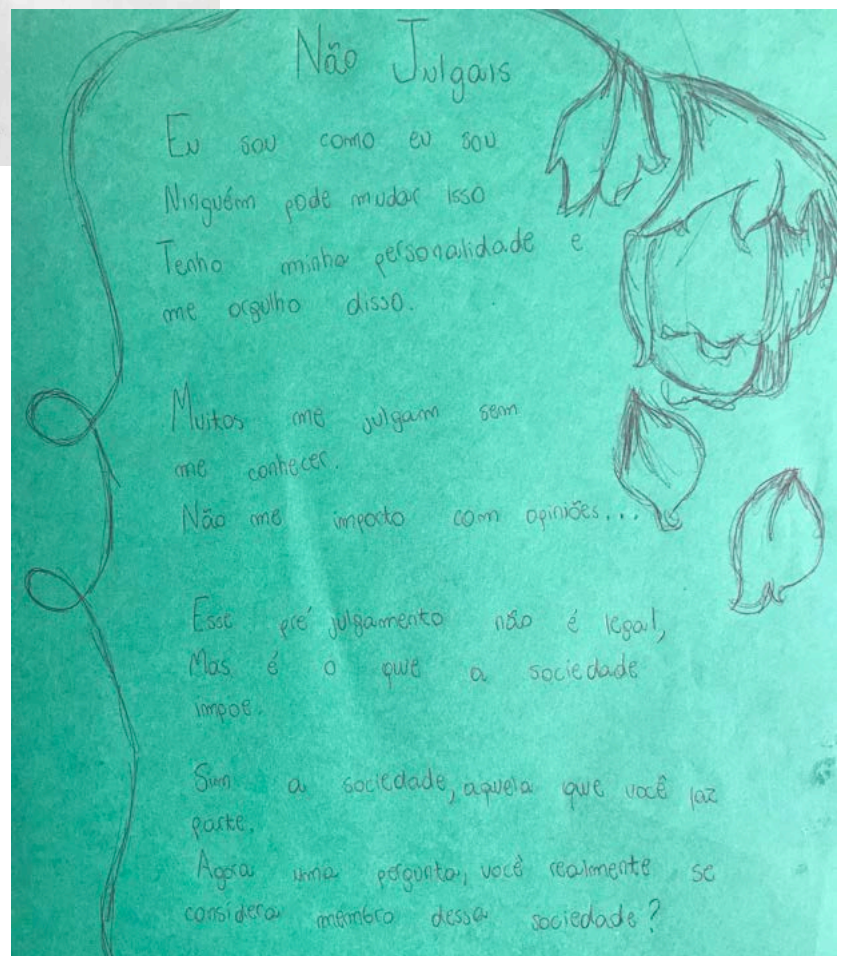 Não Julgais
Eu sou como eu sou
Ninguém pode mudar isso
Tenho minha personalidade e
me orgulho disso.
Muitos me julgam sem
me conhecer.
Não me importo com opiniões...
Esse pré julgamento não é legal,
Mas é o que a sociedade
impoe.
Sim a sociedade, aquela que você faz
parte.
Agora uma pergunta, você realmente se
considera membro dessa sociedade?